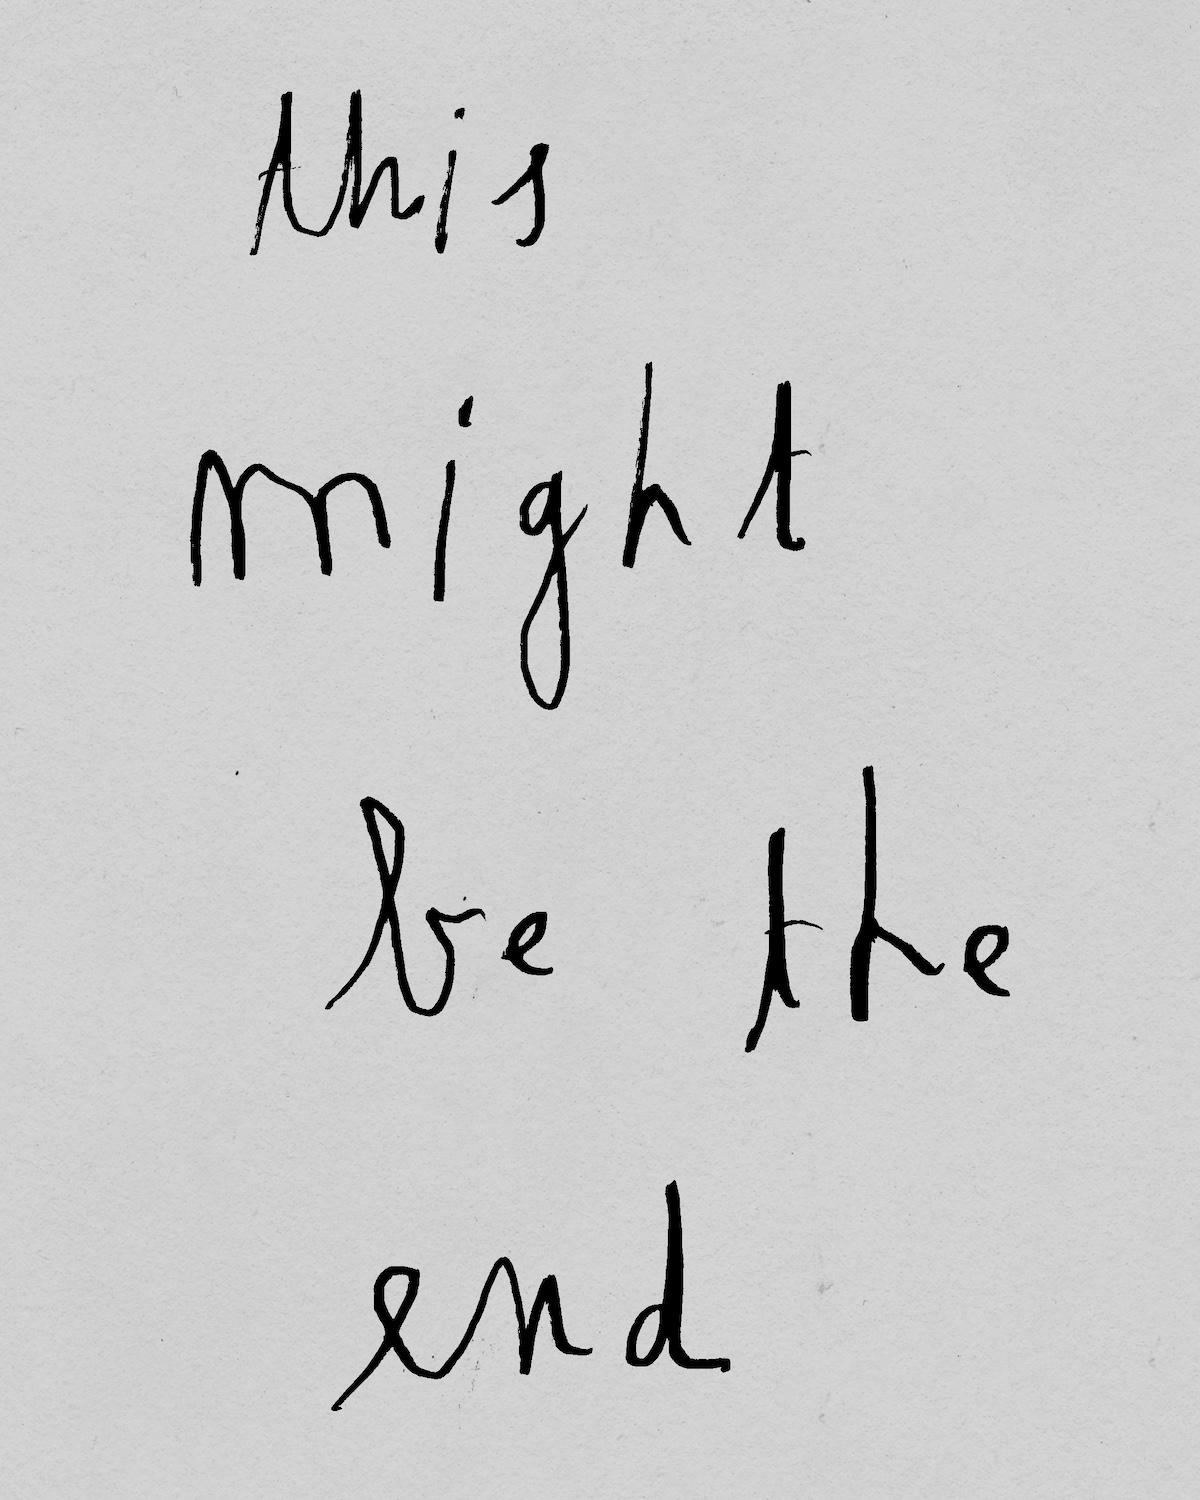 this
might
be the
end